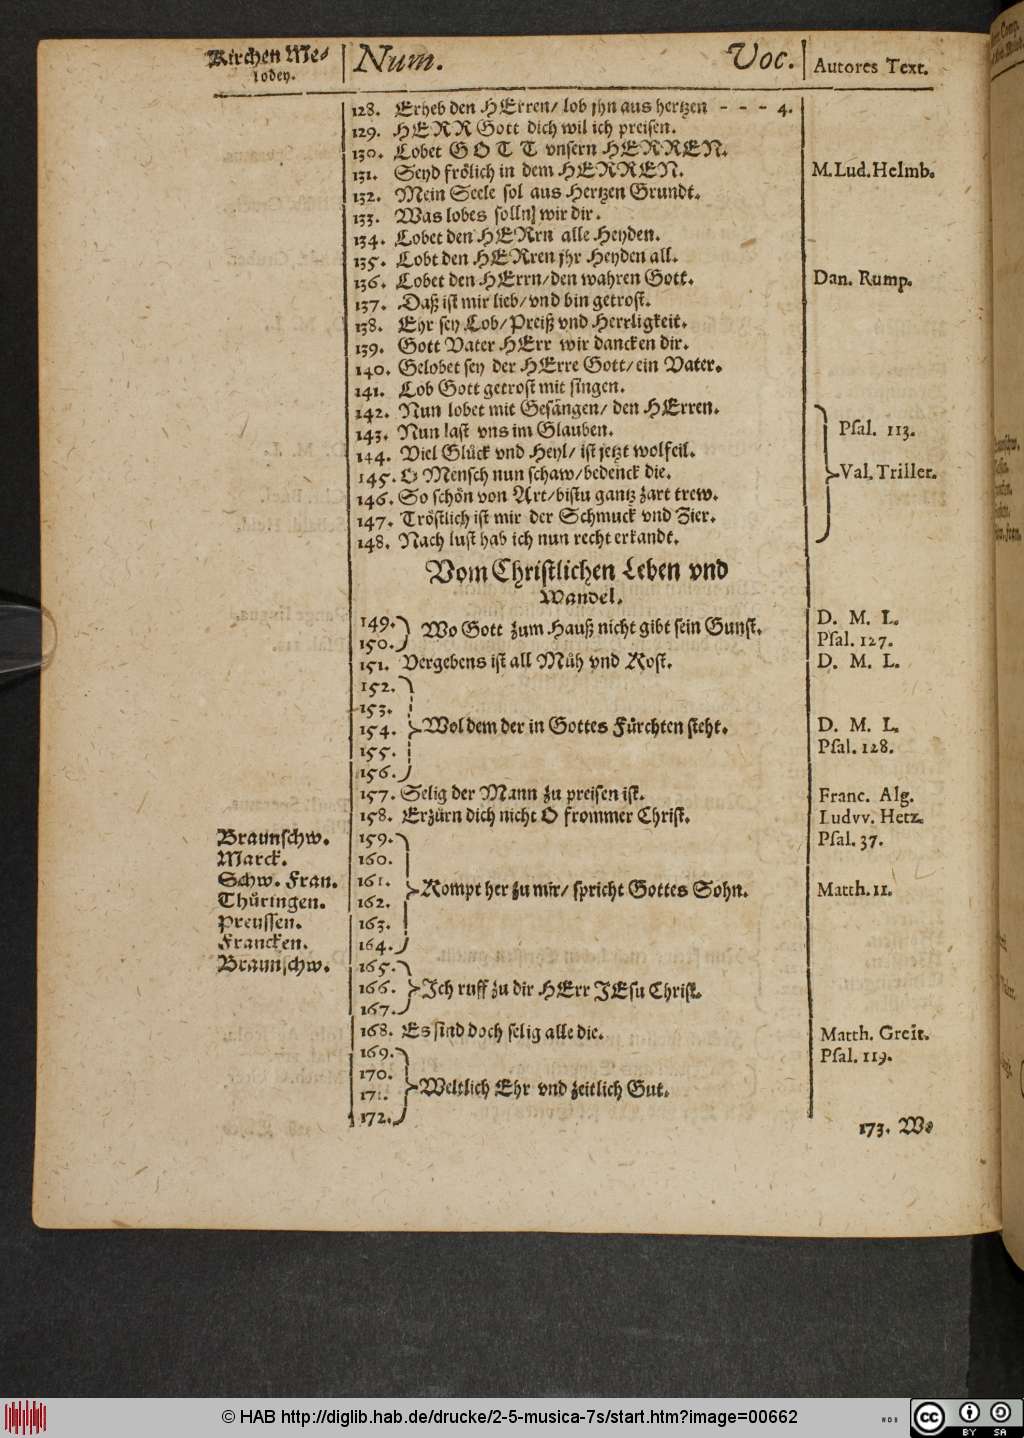 Kirchen Me-
lodey.
Num.
Voc.
Autores Text.
128. Erheb den HErren/ lob jhn aus hertzen - - - 4.
129. HERR Gott dich wil ich preisen.
130. Lobet GOTT vnsern HERREN.
131. Seyd frölich in dem HERREN. M. Lud. Helmb.
132. Mein Seele sol aus Hertzen Grundt.
133. Was lobes solln wir dir.
134. Lobet den HERrn alle Heyden.
135. Lobt den HERren jhr Heyden all.
136. Lobet den HErrn/den wahren Gott. Dan. Rump.
137. Daß ist mir lieb/vnd bin getrost.
138. Ehr sey Lob/Preiß vnd Herrligkeit.
139. Gott Vater HErr wir dancken dir.
140. Gelobet sey der HErre Gott/ein Vater.
141. Lob Gott getrost mit singen.
142. Nun lobet mit Gesängen/ den HErren.
143. Nun last vns im Glauben. Psal. 113.
144. Viel Glück vnd Heyl/ ist jetzt wolfeil.
145. O Mensch nun schaw/bedenck die. Val. Triller.
146. So schön von Art/bistu gantz zart trew.
147. Tröstlich ist mir der Schmuck vnd Zier.
148. Nach lust hab ich nun recht erkandt.
Vom Christlichen Leben vnd
Wandel.
149. D. M. L.
Wo Gott zum Hauß nicht gibt sein Gunst.
150. Psal. 127.
151. Vergebens ist all Müh vnd Kost. D. M. L.
152.
153.
154. Wol dem der in Gottes Fürchten steht. D. M. L.
155. Psal. 128.
156.
157. Selig der Mann zu preisen ist. Franc. Alg.
158. Erzürn dich nicht O frommer Christ. Ludvv. Hetz.
Braunschw. 159. Psal. 37.
Marck. 160.
Schw. Fran. 161. Kompt her zu mir/ spricht Gottes Sohn. Matth. 11.
Thüringen. 162.
Preussen. 163.
Francken. 164.
Braunschw. 165.
166. Ich ruff zu dir HErr JEsu Christ.
167.
168. Es sind doch selig alle die. Matth. Greit.
169. Psal. 119.
170.
Weltlich Ehr vnd zeitlich Gut.
171.
172.
173. We
© HAB http://diglib.hab.de/drucke/2-5-musica-7s/start.htm?image=00662
CC BY SA